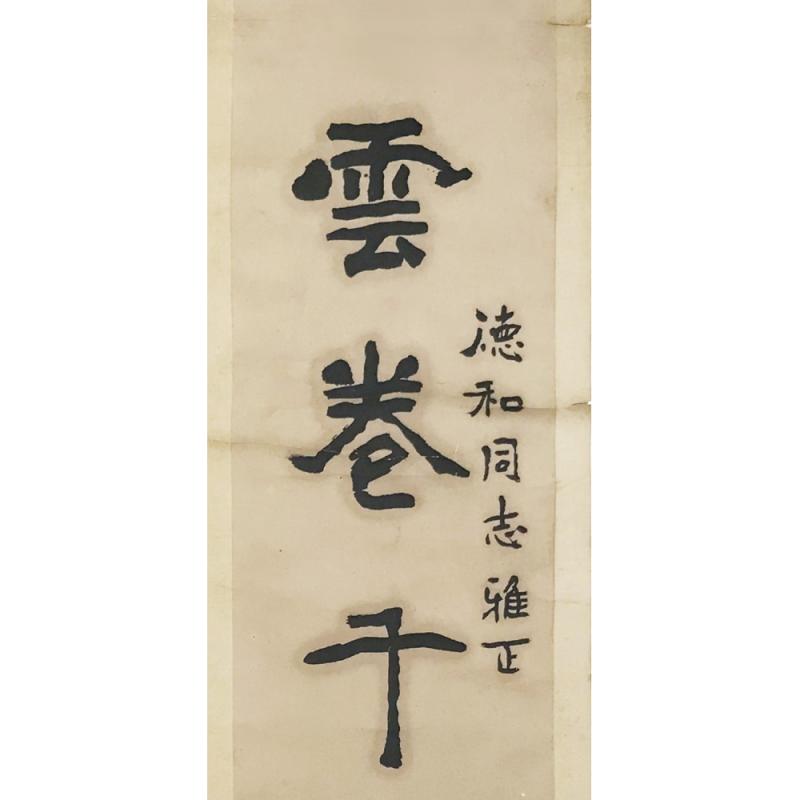 德和同志雅正
雲卷千